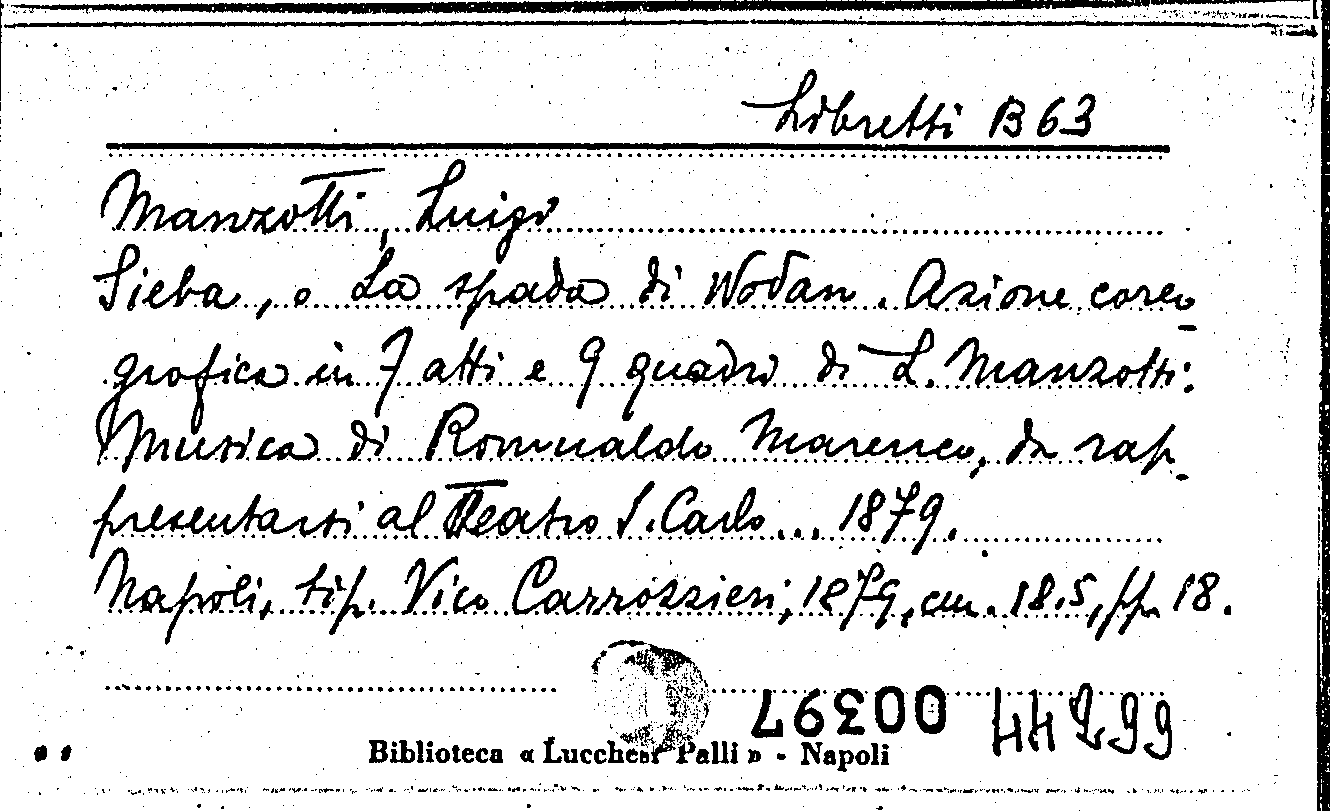 Libretti B 63
Manzotti, Luigi
Sieba, o La spada di Wodan. Azione coreo-
grafica in 7 atti e 9 quadri di L. Manzotti.
Musica di Romualdo Marenco, da rap-
presentarsi al Teatro S. Carlo... 1879.
Napoli, tip. Vico Carrozzieri, 1879, cm. 18.5, pp. 18.
00397 44299
Biblioteca « Lucchesi Palli » - Napoli